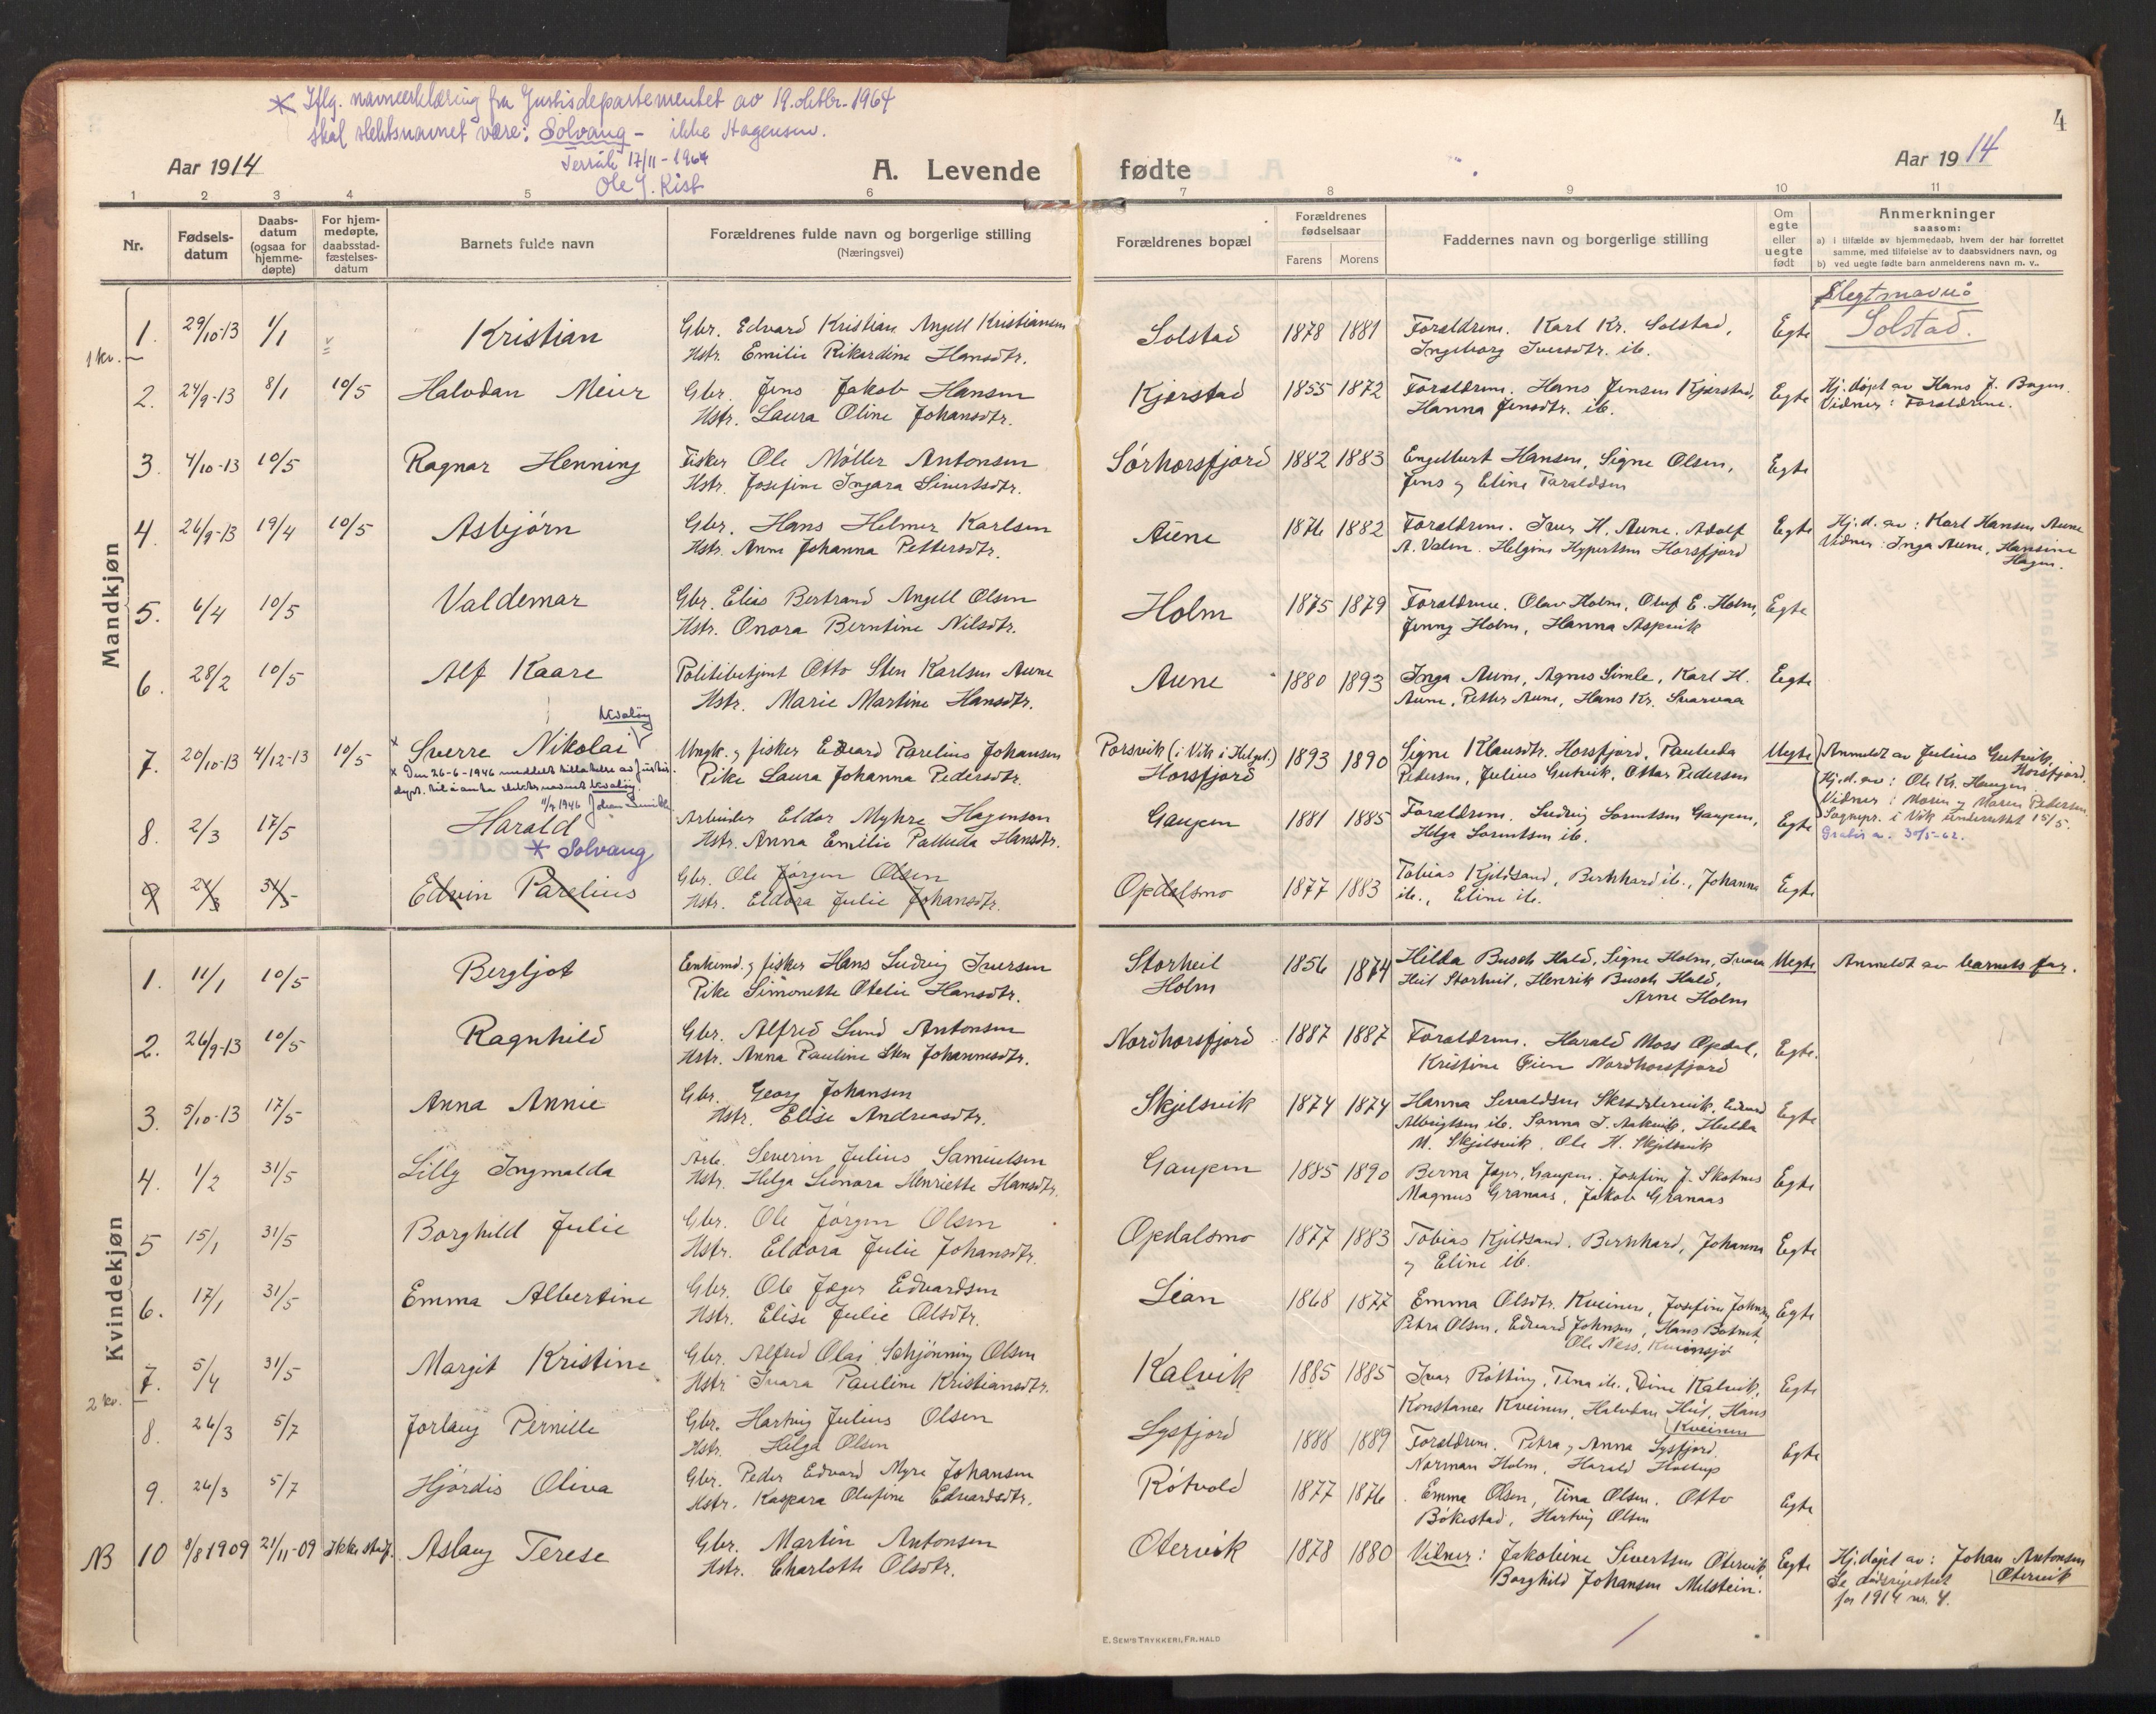 * Iflg. navneerklæring fra Justisdepartementet av 19. oktbr. 1964
skal slektsnavnet være: Solvang - ikke Hagensen.
Terråk 17/11-1964
Ole J. Kist
4
Aar 1914
A. Levende fødte
Aar 1914
1 2 3 4 5 6 7 8 9 10 11
Nr.
Fødsels-
datum
Daabs-
datum
(ogsaa for
hjemme-
døpte)
For hjem-
medøpte,
daabsstad-
fæstelses-
datum
Barnets fulde navn
Forældrenes fulde navn og borgerlige stilling
(Næringsvei)
Forældrenes bopæl
Forældrenes
fødselsaar
Farens Morens
Faddernes navn og borgerlige stilling
Om
egte
eller
uegte
født
Anmerkninger
saasom:
a) i tilfælde av hjemmedaab, hvem der har forrettet
samme, med tilføielse av to daabsvidners navn, og
b) ved uegte fødte barn anmelderens navn m. v..
Mandkjøn
1 kv.
1. 29/10-13 1/1 Kristian
Gbr. Edvard Kristian Angell Kristiansen
Hstr. Emilie Rikardine Hansdtr.
Solstad 1878 1881
Forældrene. Karl Kr. Solstad,
Ingeborg Iversdtr. ib.
Egte
Slegtsnavn:
Solstad.
2. 24/9-13 8/1 10/5 Halvdan Meier
Gbr. Jens Jakob Hansen
Hstr. Laura Oline Johansdtr.
Kjærstad 1855 1872
Forældrene. Hans Jensen Kjærstad,
Hanna Jensdtr. ib.
Egte
Hj. døpt av Hans J. Bogen.
Vidner: Forældrene.
3. 4/10-13 10/5 Ragnar Henning
Fisker Ole Møller Antonsen
Hstr. Josefine Ingara Sivertsdtr.
Sørhorsfjord 1882 1883
Engelbert Hansen, Signe Olsen,
Jens og Eline Taraldsen
Egte
4. 26/9-13 19/4 10/5 Asbjørn
Gbr. Hans Helmer Karlsen
Hstr. Anne Johanna Pettersdtr.
Aune 1876 1882
Forældrene. Iver H. Aune. Adolf
A. Valen. Helgine Hypertsen Horsfjord
Egte
Hj. d. av: Karl Hansen Aune
Vidner: Inga Aune, Hansine
Hagen.
5. 6/4 10/5 Valdemar
Gbr. Elias Bertrand Angell Olsen
Hstr. Onora Berntine Nilsdtr.
Holm 1875 1879
Forældrene. Olav Holm, Oluf E. Holm,
Jenny Holm, Hanna Aspvik
Egte
6. 28/2 10/5 Alf Kaare
Politibetjent Otto Sten Karlsen Aune
Hstr. Marie Martine Hansdtr.
Aune 1880 1893
Inga Aune, Agnes Simle, Karl H.
Aune, Petter Aune, Hans Kr. Svarvaa
Egte
7. 20/10-13 4/12-13 10/5 x Sverre Nikolai Kvaløy
x Den 26-6-1946 meddelt tillatelse av Justis.
dept. til å anta slektsnavnet Kvaløy.
11/7 1946 Johan Smith
Ungk. og fisker Edvard Parelius Johansen
Pike Laura Johanna Pedersdtr.
Porsvik (i Vik i Helgel.)
Horsfjord
1893 1890
Signe Klausdtr. Horsfjord, Pauluda
Pedersen, Julius Gutvik, Ottar Pedersen
Uegte
Anmeldt av Julius Gutvik,
Horsfjord
Hj. d. av: Ole Kr. Haugen
Vidner: Maren og Maren Pedersen
Sognepr. i Vik underrettet 15/5.
8. 2/3 17/5 Harald
* Solvang
Arbeider Eldor Myhre Hagensen
Hstr. Anna Emilie Palluda Hansdtr.
Gaupen 1881 1885
Forældrene. Ludvig Lorentsen Gaupen,
Helga Lorentsen ib.
Egte
Gratis a. 30/5-62.
9 24/3 31/5 Edvin Parelius
Gbr. Ole Jørgen Olsen
Hstr. Eldora Julie Johansdtr.
Opdalsmo 1877 1883
Tobias Kjeldsand, Bernhard ib., Johanna
ib., Eline ib.
Egte
Kvindekjøn
1. 11/1 10/5 Bergljot
Enkemd. og fisker Hans Ludvig Iversen
Pike Simonette Otelie Hansdtr.
Storheil
Holm
1856 1874
Hilda Busch Hald, Signe Holm, Ivara
Heil Storheil, Henrik Busch Hald,
Arne Holm
Uegte
Anmeldt av barnets far.
2. 26/9-13 10/5 Ragnhild
Gbr. Alfred Lund Antonsen
Hstr. Anna Pauline Sten Johannesdtr.
Nordhorsfjord 1887 1887
Forældrene. Harald Moss Opdal,
Kristine Fien Nordhorsfjord
Egte.
3. 5/10-13 17/5 Anna Annie
Gbr. Georg Johansen
Hstr. Elise Andreasdtr.
Skjelsvik 1874 1874
Hanna Sevaldsen Edvard
Albrigtsen ib. Sanna J. Aakvik, Hulda
M. Skjelsvik. Ole H. Skjelsvik
Egte
4. 1/2 31/5 Lilly Ingmalda
Arb. Severin Julius Samuelsen
Hstr. Helga Leonora Henriette Hansdtr.
Gaupen 1885 1890
Berna Jæger, Gaupen. Josefine J. Skotnes
Magnus Granaas, Jakob Granaas
Egte
5 15/1 31/5 Borghild Julie
Gbr. Ole Jørgen Olsen
Hstr. Eldora Julie Johansdtr.
Opdalsmo 1877 1883
Tobias Kjeldsand. Bernhard, Johanna
og Eline ib.
Egte
6. 17/1 31/5 Emma Albertine
Gbr. Ole Jæger Edvardsen
Hstr. Elise Julie Olsdtr.
Lian 1868 1877
Emma Olsdtr. Kveinen, Josefine Johnsen
Petra Olsen, Edvard Johnsen, Hans Botnet,
Ole Ness, Kveinsjø
Egte
2 kv.
7. 5/4 31/5 Margit Kristine
Gbr. Alfred Olai Schjønning Olsen
Hstr Ivara Pauline Kristiansdtr.
Kalvik 1885 1885
Ivar Røtting, Tina ib., Dina Kalvik,
Konstance Kveinen, Halvdan Heil, Hans
Kveinen
Egte
8. 26/3 5/7 Jorlaug Pernille
Gbr. Hartvig Julius Olsen
Hstr. Helga Olsen
Lysfjord 1888 1889
Forældrene. Petra og Anna Lysfjord.
Norman Holm, Harald Hollup
Egte
9. 26/3 5/7 Hjørdis Oliva
Gbr. Peder Edvard Myre Johansen
Hstr. Kaspara Olufine Edvardsdtr.
Røtvold 1877 1876
Emma Olsen, Tina Olsen. Otto
Bøkestad, Hartvig Olsen
Egte
NB 10 8/8 1909 21/11-09 Ikke stadf. Aslaug Terese
Gbr. Martin Antonsen
Hstr. Charlotte Olsdtr.
Otervik 1878 1880
Vidner: Jakobine Sivertsen Otervik
Borghild Johansen Melstein.
Egte
Hj. døpt av: Johan Antonsen
Otervik
Se dødsregistret
for 1914 nr. 4.
E. SEM'S TRYKKERI, FR.HALD